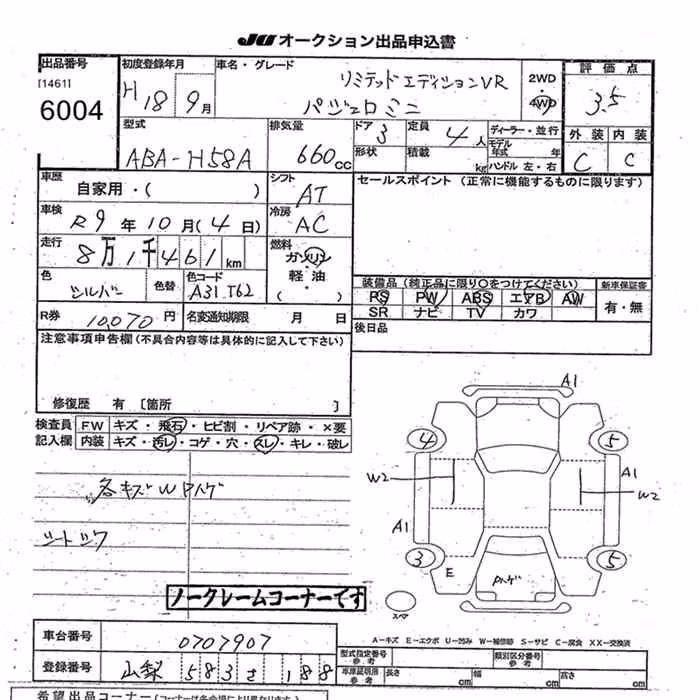 JU オークション出品申込書
出品番号 [1461] 6004
初度登録年月 H18 9月
車名・グレード リミテッドエディションVR パジェロミニ
2WD 4WD
評価点 3.5
型式 ABA-H58A
排気量 660cc
ドア 3 形状
定員 4人 積載 kg
ディーラー・並行 モデル年式 年 ハンドル 左・右
外装 内装
C C
車歴 自家用・( )
シフト AT
セールスポイント (正常に機能するものに限ります)
車検 R9年10月(4日)
冷房 AC
走行 8万1千461km
燃料 ガソリン・軽油 ( )
色 シルバー 色替
色コード A31.T62
装備品 (純正品に限り〇をつけてください) 新車保証書
PS PW ABS エアB AW 有・無
SR ナビ TV カワ
R券 10,070円 名変通知期限 月 日
後日品
注意事項申告欄 (不具合内容等は具体的に記入して下さい)
修復歴 有 [箇所 ]
検査員記入欄
FW キズ・飛石・ヒビ割・リペア跡・×要
内装 キズ・汚レ・コゲ・穴・スレ・キレ・破レ
各キズWPハゲ
シートシワ
ノークレームコーナーです
A1
4 5
W2 A1 W2
A1
3 5
E Pハゲ
スペア
A-キズ E-エクボ U-凹み W-補修跡 S-サビ C-腐食 XX-交換済
車台番号 0707907
登録番号 山梨 583 さ 188
型式指定番号 参考 類別区分番号 参考
車庫証明用 参考 長さ cm 幅 cm 高さ cm
希望出品コーナー